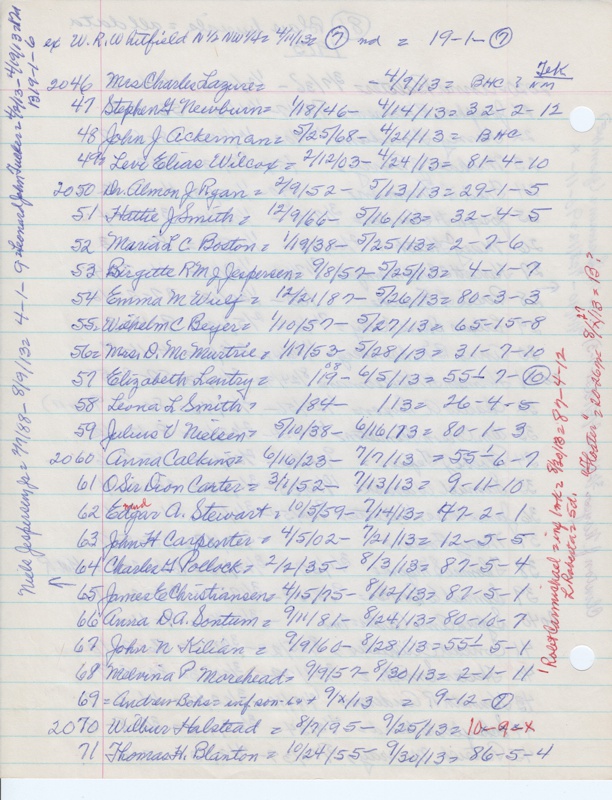 ex W.R. Whitfield N½ NW¼ = 4/11/13 = ⑦ nd = 19-1-⑦
2046 Mrs Charles Lazure = - 4/9/13 = BHC ? NM
47 Stephen H Newburn = 1/18/46 - 4/14/13 = 32-2-12
48 John J Ackerman = 5/25/68 - 4/21/13 = BHC
49 Levi Elias Wilcox = 2/12/03 - 4/24/13 = 81-4-10
2050 Dr. Almon J. Ryan = 2/9/52 - 5/13/13 = 29-1-5
51 Hattie J Smith = 12/9/66 - 5/16/13 = 32-4-5
52 Maria L C Boston = 1/19/38 - 5/25/13 = 2-7-6
53 Birgitte R M J Jespersen = 9/8/57 - 5/25/13 = 4-1-7
54 Emma M = 12/21/87 - 5/26/13 = 80-3-3
55 Wilhelm C Beyer = 1/10/57 - 5/27/13 = 65-15-8
56 = Mrs. D. Mc Murtrie = 1/17/53 - 5/28/13 = 31-7-10
57 Elizabeth Lantry = - 6/5/13 = 55½-7-⑥
58 Leona L Smith = 184 - 113 = 26-4-5
59 Julius V Nielsen = 5/10/38 - 6/16/13 = 80-1-3
2060 Anna Calkins = 6/16/23 - 7/7/13 = 55½-6-7
61 O Sir Dion Carter = 3/1/52 - 7/13/13 = 9-11-10
62 Edgar A. Stewart = 10/5/59 - 7/14/13 = 47-2-1
63 John H Carpenter = 4/5/02 - 7/21/13 = 12-5-5
64 Charles H Pollock = 2/2/35 - 8/3/13 = 87-5-4
65 James C Christiansen = 4/15/75 - 8/12/13 = 87-5-1
66 Anna D.A. Sontum = 9/11/81 - 8/24/13 = 80-10-7
67 John N Kilian = 9/9/60 - 8/28/13 = 55½-5-1
68 Melvina P Morehead = 9/9/57 - 8/30/13 = 2-1-11
69 = Andrew Bohs = inf son 9/x/13 = 9-12-⑦
2070 Wilbur Halstead = 8/7/95 - 9/25/13 = 10-9-x
71 Thomas H. Blanton = 10/24/55 - 9/30/13 = 86-5-4
Niels Jespersen jr = 7/9/88 - 8/9/13 = 4-1-9
Leonard John Tucker = 4/9/13 - 4/19/13 =
B 19-1-6
Robt Carmichael = inf = 8/20/13 = 87-4-12
L Roberta = Sd. "Hester" = 8/2/13 = B?